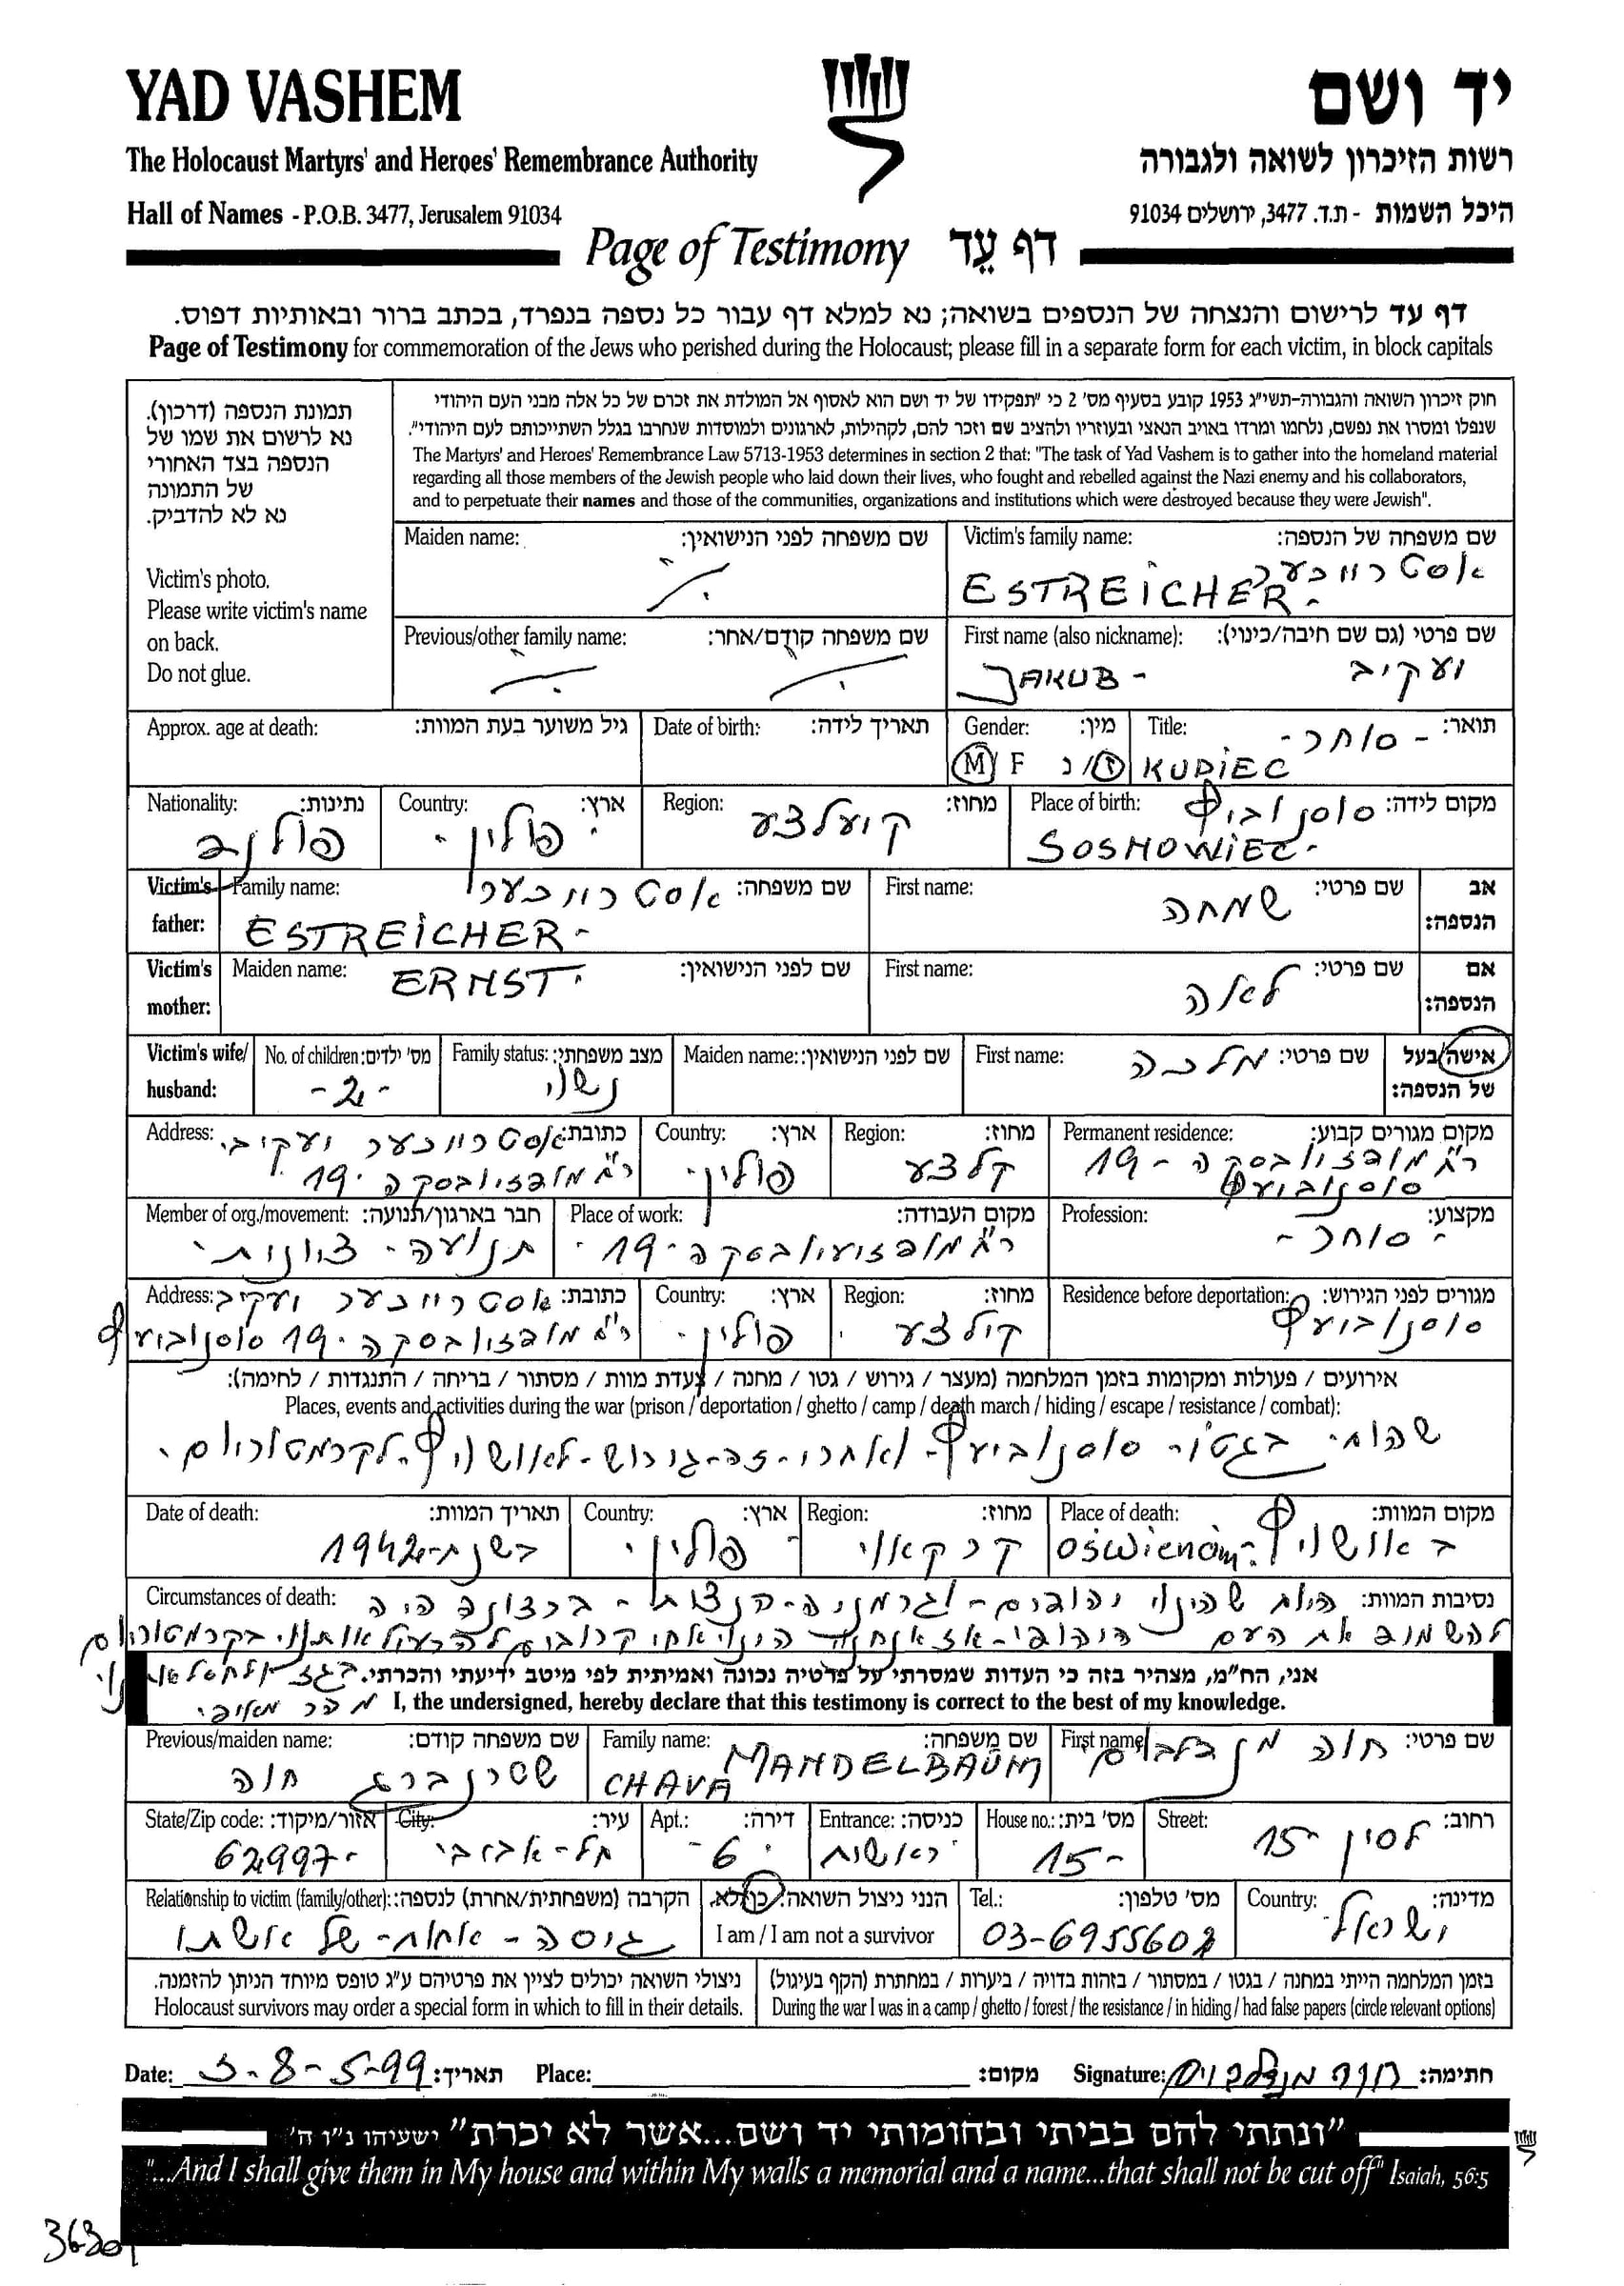 YAD VASHEM
יד ושם
The Holocaust Martyrs' and Heroes' Remembrance Authority
רשות הזיכרון לשואה ולגבורה
Hall of Names - P.O.B. 3477, Jerusalem 91034
היכל השמות - ת.ד. 3477, ירושלים 91034
Page of Testimony דף עֵד
דף עד לרישום והנצחה של הנספים בשואה; נא למלא דף עבור כל נספה בנפרד, בכתב ברור ובאותיות דפוס.
Page of Testimony for commemoration of the Jews who perished during the Holocaust; please fill in a separate form for each victim, in block capitals
תמונת הנספה (דרכון).
נא לרשום את שמו של
הנספה בצד האחורי
של התמונה
נא לא להדביק.
Victim's photo.
Please write victim's name
on back.
Do not glue.
חוק זיכרון השואה והגבורה-תשי"ג 1953 קובע בסעיף מס' 2 כי "תפקידו של יד ושם הוא לאסוף אל המולדת את זכרם של כל אלה מבני העם היהודי
שנפלו ומסרו את נפשם, נלחמו ומרדו באויב הנאצי ובעוזריו ולהציב שם וזכר להם, לקהילות, לארגונים ולמוסדות שנחרבו בגלל השתייכותם לעם היהודי".
The Martyrs' and Heroes' Remembrance Law 5713-1953 determines in section 2 that: "The task of Yad Vashem is to gather into the homeland material
regarding all those members of the Jewish people who laid down their lives, who fought and rebelled against the Nazi enemy and his collaborators,
and to perpetuate their names and those of the communities, organizations and institutions which were destroyed because they were Jewish".
Victim's family name: שם משפחה של הנספה:
אסטרייכער
ESTREICHER -
Maiden name: שם משפחה לפני הנישואין:
First name (also nickname): שם פרטי (גם שם חיבה/כינוי):
JAKUB - יעקיב
Previous/other family name: שם משפחה קודם/אחר:
Title: תואר: - סוחר -
KUPIEC
Gender: מין:
M F ז/נ
Date of birth: תאריך לידה:
Approx. age at death: גיל משוער בעת המוות:
Place of birth: מקום לידה:
SOSNOWIEC -
Region: מחוז: קיעלצע
Country: ארץ: פולין
Nationality: נתינות: פולני
Victim's father: אב הנספה:
First name: שם פרטי: שמחה
Family name: שם משפחה: אסטרייכער
ESTREICHER -
Victim's mother: אם הנספה:
First name: שם פרטי: לאה
Maiden name: שם לפני הנישואין: ERNST
Victim's wife/ husband: אישה/בעל של הנספה:
First name: שם פרטי: מלכה
Maiden name: שם לפני הנישואין:
Family status: מצב משפחתי: נשוי
No. of children: מס' ילדים: -2-
Permanent residence: מקום מגורים קבוע:
Region: מחוז: קלצע
Country: ארץ: פולין
Address: כתובת: אסטרייכער יעקיב
Profession: מקצוע: - סוחר -
Place of work: מקום העבודה:
Member of org./movement: חבר בארגון/תנועה: תנועה - ציונית
Residence before deportation: מגורים לפני הגירוש:
Region: מחוז: קילצע
Country: ארץ: פולין
Address: כתובת: אסטרייכער יעקיב
אירועים / פעולות ומקומות בזמן המלחמה (מעצר / גירוש / גטו / מחנה / צעדת מוות / מסתור / בריחה / התנגדות / לחימה):
Places, events and activities during the war (prison / deportation / ghetto / camp / death march / hiding / escape / resistance / combat):
Place of death: מקום המוות:
Region: מחוז: קרקאוי
Country: ארץ: פולין
Date of death: תאריך המוות: בשנת - 1942
Circumstances of death: נסיבות המוות: היות שהינוי יהודים -
אני, הח"מ, מצהיר בזה כי העדות שמסרתי על פרטיה נכונה ואמיתית לפי מיטב ידיעתי והכרתי.
I, the undersigned, hereby declare that this testimony is correct to the best of my knowledge.
First name שם פרטי: חוה מנדלבוים
Family name: שם משפחה: MANDELBAUM
CHAVA
Previous/maiden name: שם משפחה קודם:
שטרנברג חוה
Street: רחוב: לסין 15
House no.: מס' בית: 15-
Entrance: כניסה: ראשית
Apt.: דירה: 6
City: עיר: תל-אביב
State/Zip code: אזור/מיקוד: 62997-
Country: מדינה: ישראל
Tel.: מס' טלפון: 03-6955608
הנני ניצול השואה: כן/לא
I am / I am not a survivor
Relationship to victim (family/other): הקרבה (משפחתית/אחרת) לנספה:
גיסה - אחות - של אשתו
בזמן המלחמה הייתי במחנה / בגטו / במסתור / בזהות בדויה / ביערות / במחתרת (הקף בעיגול)
During the war I was in a camp / ghetto / forest / the resistance / in hiding / had false papers (circle relevant options)
ניצולי השואה יכולים לציין את פרטיהם ע"ג טופס מיוחד הניתן להזמנה.
Holocaust survivors may order a special form in which to fill in their details.
Date: 3-8-5-99 תאריך: Place: מקום: Signature: חוה מנדלבוים חתימה:
"ונתתי להם בביתי ובחומותי יד ושם...אשר לא יכרת" ישעיהו נ"ו ה'
"...And I shall give them in My house and within My walls a memorial and a name...that shall not be cut off" Isaiah, 56:5